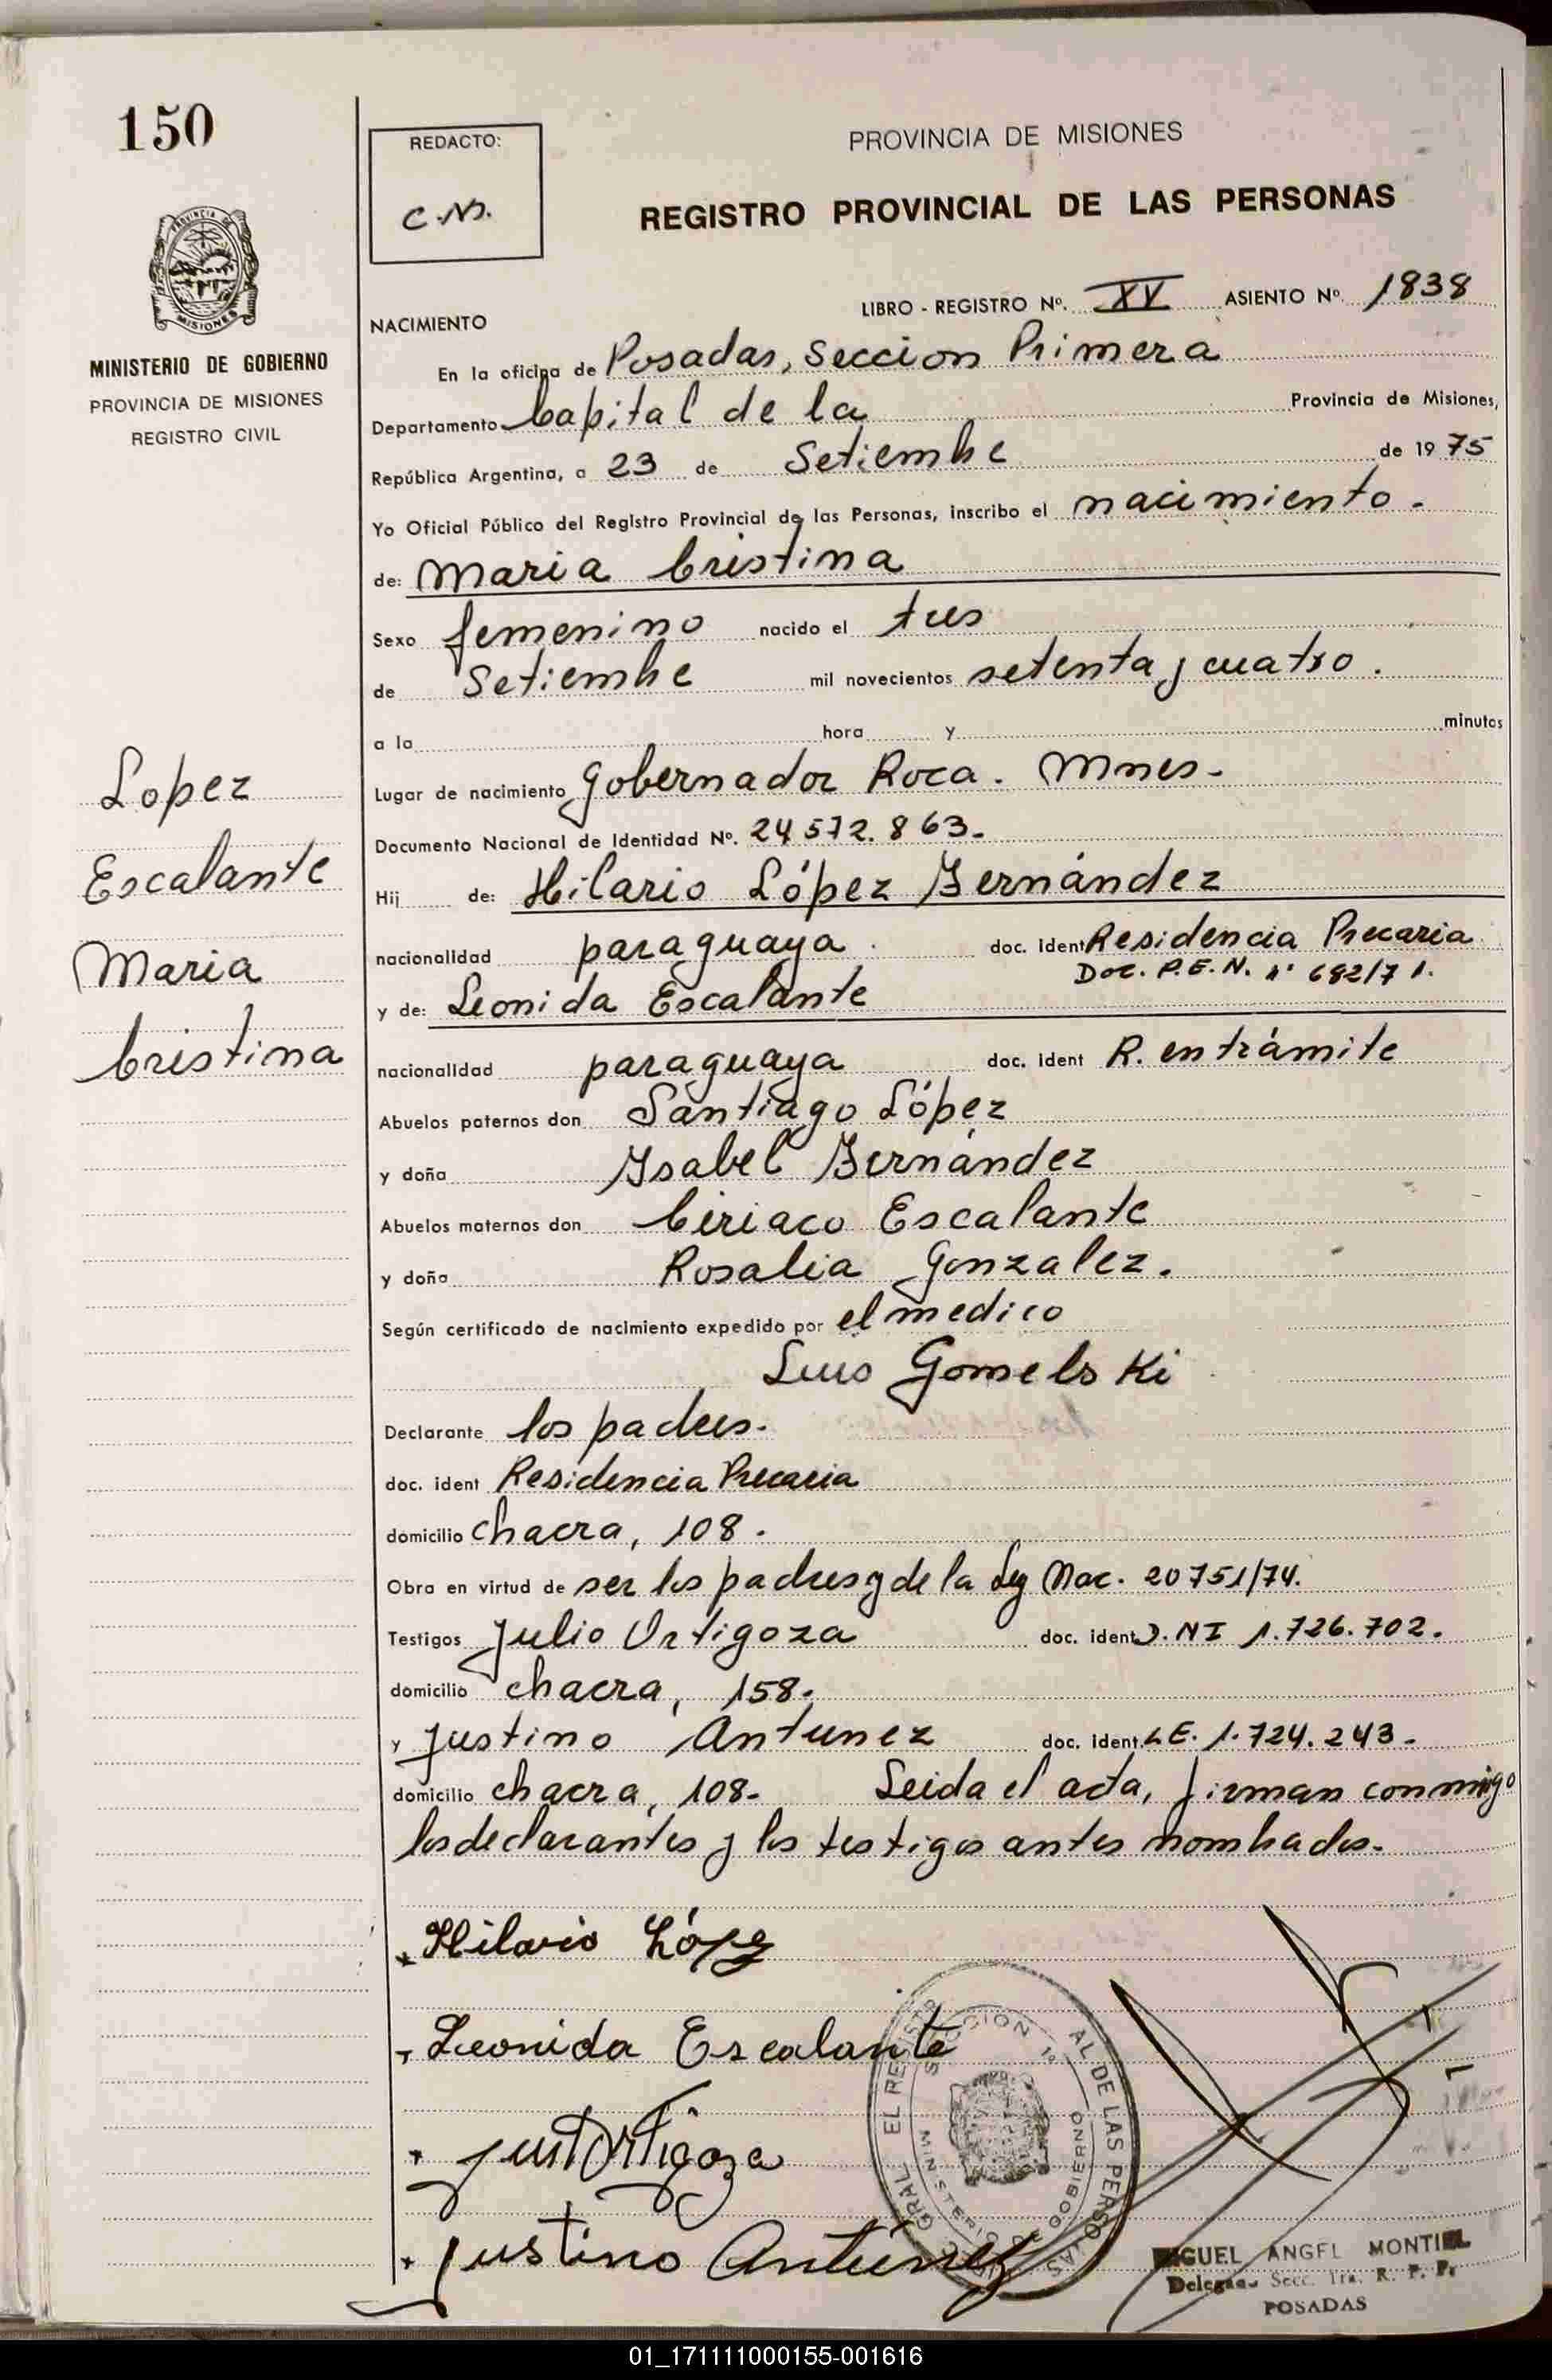 150
REDACTO:
C.N.
PROVINCIA DE MISIONES
REGISTRO PROVINCIAL DE LAS PERSONAS
PROVINCIA DE
MISIONES
MINISTERIO DE GOBIERNO
PROVINCIA DE MISIONES
REGISTRO CIVIL
LIBRO - REGISTRO Nº. XV ASIENTO Nº 1838
NACIMIENTO
En la oficina de Posadas, Seccion Primera
Departamento Capital de la Provincia de Misiones,
República Argentina, a 23 de Setiembre de 1975
Yo Oficial Público del Registro Provincial de las Personas, inscribo el nacimiento.
de: Maria Cristina
Sexo femenino nacido el tres
de Setiembre mil novecientos setenta y cuatro.
a la hora y minutos
Lugar de nacimiento Gobernador Roca. Mnes.
Documento Nacional de Identidad Nº. 24572.863.
Hij de: Hilario López Fernández
nacionalidad paraguaya. doc. ident Residencia Precaria
Doc. P.E.N. nº 682/71.
y de: Leonida Escalante
nacionalidad paraguaya doc. ident R. en trámite
Abuelos paternos don Santiago López
y doña Ysabel Fernández
Abuelos maternos don Ciriaco Escalante
y doña Rosalia Gonzalez.
Según certificado de nacimiento expedido por el medico
Luis Gomelski
Declarante los padres.
doc. ident Residencia Precaria
domicilio chacra, 108.
Obra en virtud de ser los padres y de la Ley Nac. 20751/74.
Testigos Julio Ortigoza doc. ident D.NI 1.726.702.
domicilio chacra, 158.
y Justino Antunez doc. ident. LE. 1.724.243.
domicilio chacra, 108. Leida el acta, firman conmigo
los declarantes y los testigos antes nombrados.
Lopez
Escalante
Maria
Cristina
Hilario López
Leonida Escalante
Ortigoza
Justino Antúnez
SECCION 1ª
MINISTERIO DE GOBIERNO
GRAL EL REGISTR AL DE LAS PERSONAS
MIGUEL ANGEL MONTIEL
Delegado Secc. 1ra. R. P. P.
POSADAS
01_171111000155-001616